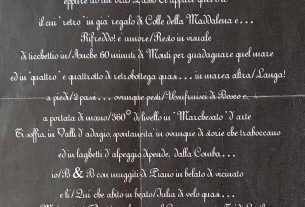 il cui "retro" in già regalo di Colle della Maddalena e...
Rifreddo! è umore/Resto in visuale
di ticchettio in/Anche 60 minuti di Monti per guadagnare quel mare
ed in "quattro" e quattrotto di retrobottega quasi... in marea altra/Langa!
a piedi/2 passi... ovunque pesti/Usufruisci di Bosco e,
a portata di mano/360° di livello in "Marchesato" d'arte
Ti soffia, in Valli d'adagio, spontaneità in ovunque di storie che traboccano
ed in laghetti d'alpeggio dipende, dalla Comba...
io/B & B con muggiti di Piano in belato di vicinato
e lì/Qui che abito in beato/Julia di velo quai...